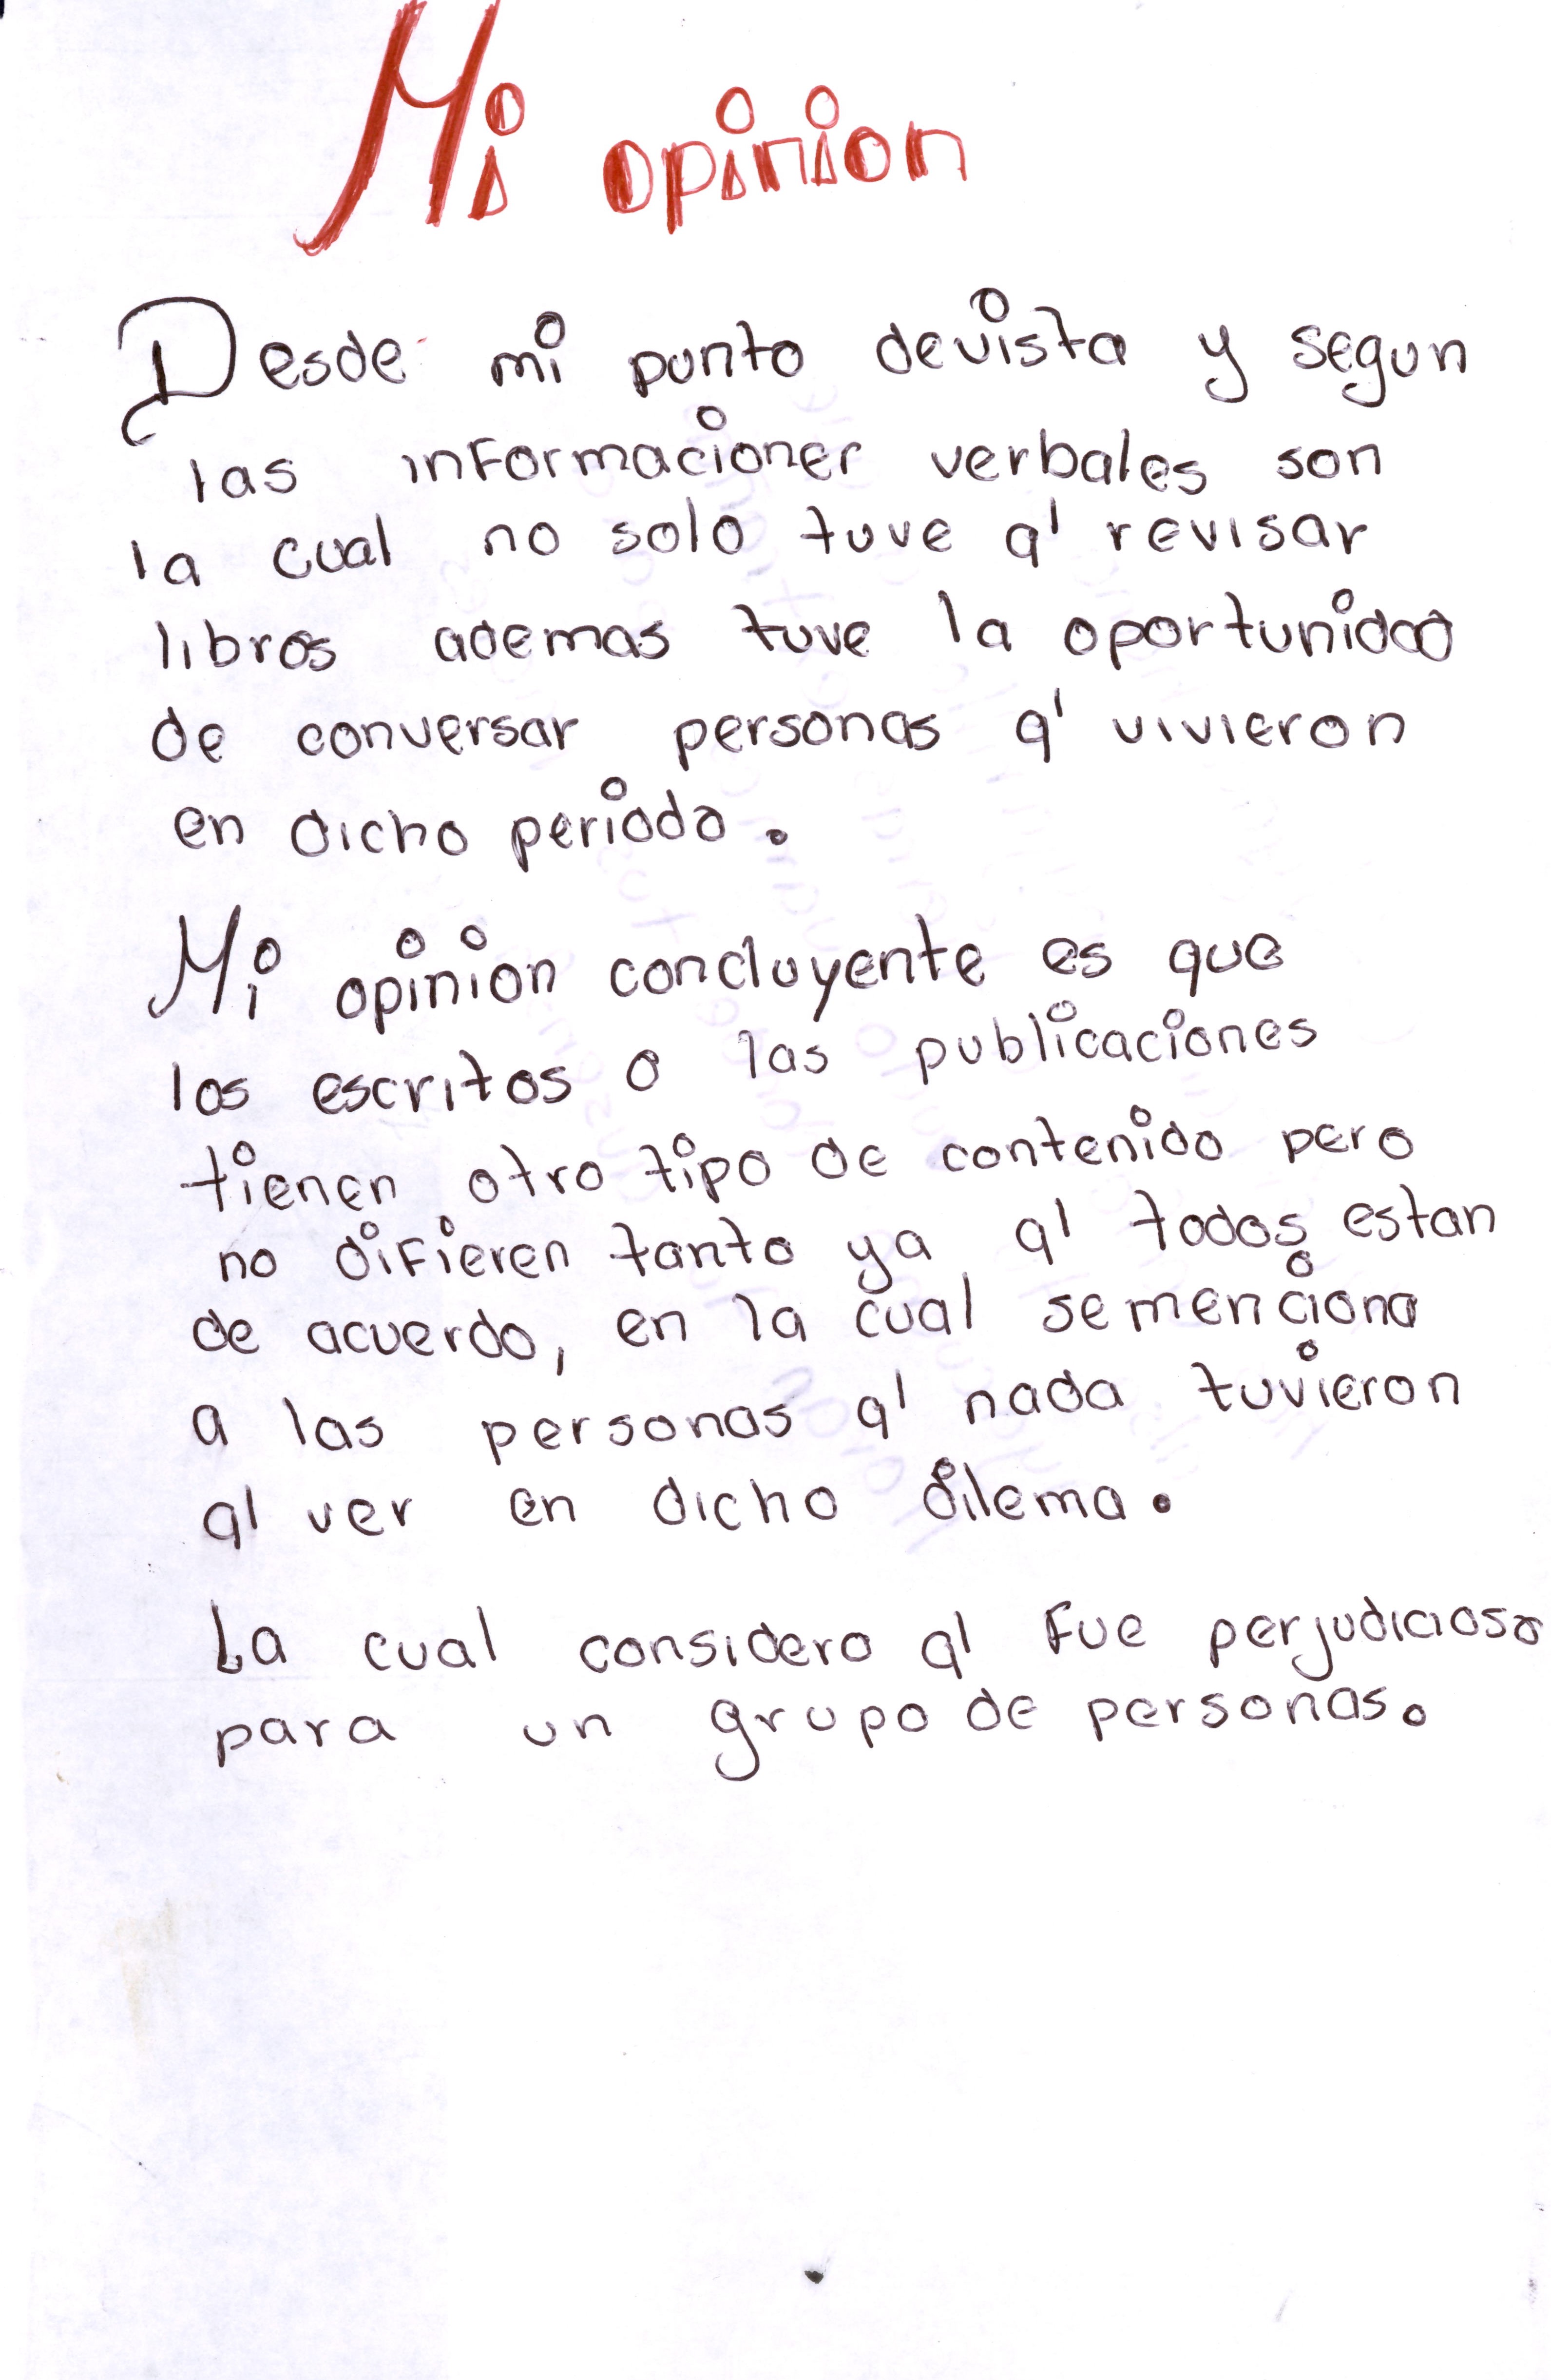 Mi opinion
Desde mi punto devista y segun
las informacioner verbales son
la cual no solo tuve q' revisar
libros ademas tuve la oportunidad
de conversar personas q' vivieron
en dicho periodo.
Mi opinion concluyente es que
los escritos o las publicaciones
tienen otro tipo de contenido pero
no difieren tanto ya q' todos estan
de acuerdo, en la cual se menciona
a las personas q' nada tuvieron
q' ver en dicho dilema.
La cual considero q' fue perjudicioso
para un grupo de personas.